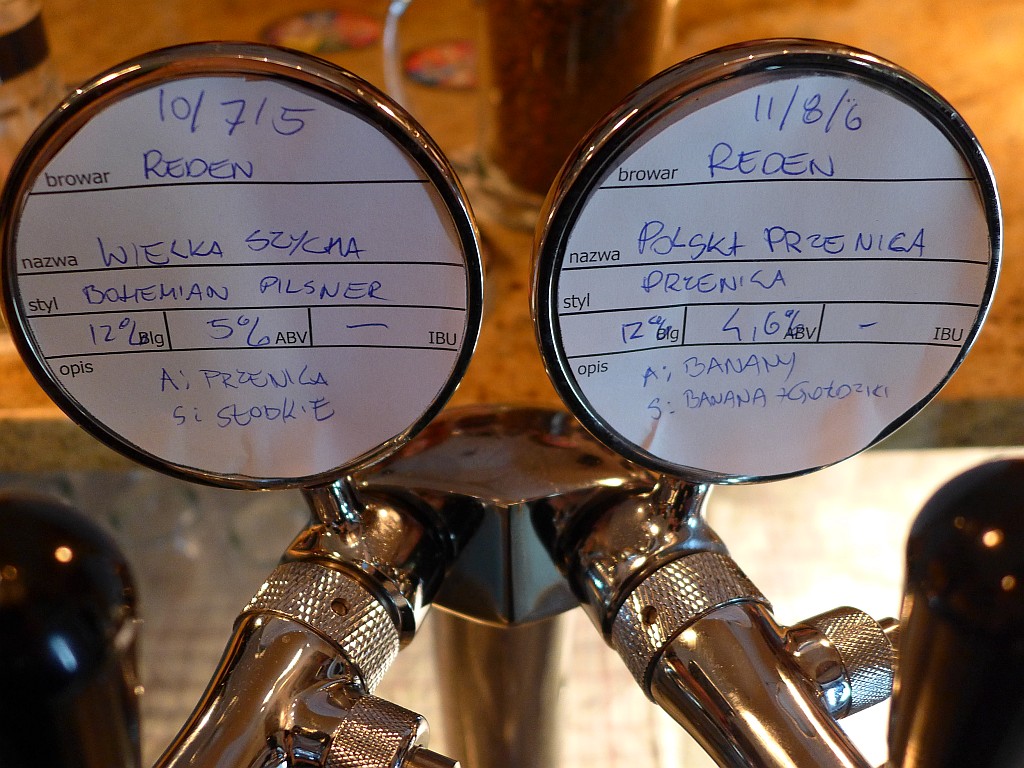 10/7/5
browar REDEN
nazwa WIELKA SZYCHA
styl BOHEMIAN PILSNER
12% Blg 5% ABV — IBU
opis
A: PRZENICA
S: SŁODKIE
11/8/6
browar REDEN
nazwa POLSKA PRZENICA
styl PRZENICA
12% Blg 4,6% ABV — IBU
opis
A: BANANY
S: BANANA + GOŹDZIKI